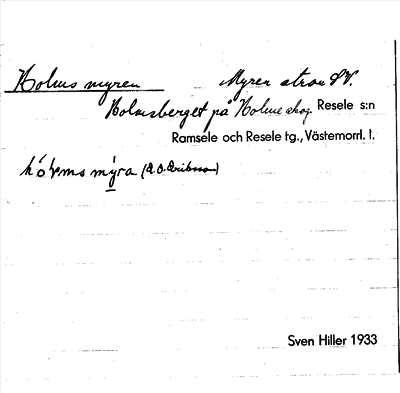 Holms myren Myren strax SV.
Holmsberget på Holme skog Resele s:n
Ramsele och Resele tg., Västernorrl. l.
myra (E.O. Eriksson)
Sven Hiller 1933